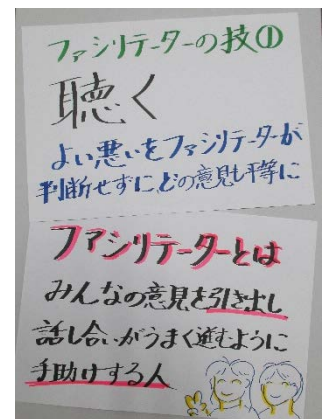 ファシリテーターの技①
聴く
よい悪いをファシリテーターが
判断せずに、どの意見も平等に
ファシリテーターとは
みんなの意見を引き出し
話し合いがうまく進むように
手助けする人